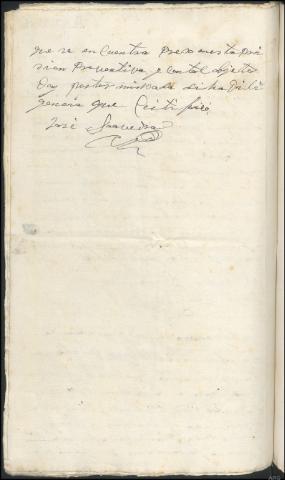 que se encuentra preso en esta pri
sion Preventiva y con tal objeto
Doy por terminada dicha Dili
gencia que Certifico
José Saavedra